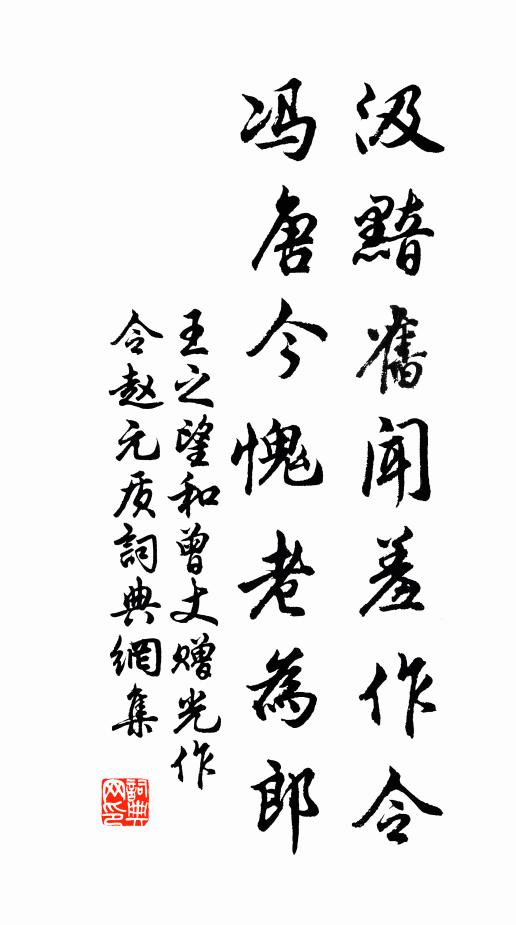 汲黯舊闻羞作令
冯唐今愧老為郎
王之望和曾丈赠光作
令赵元质詞典網集
詞典网印